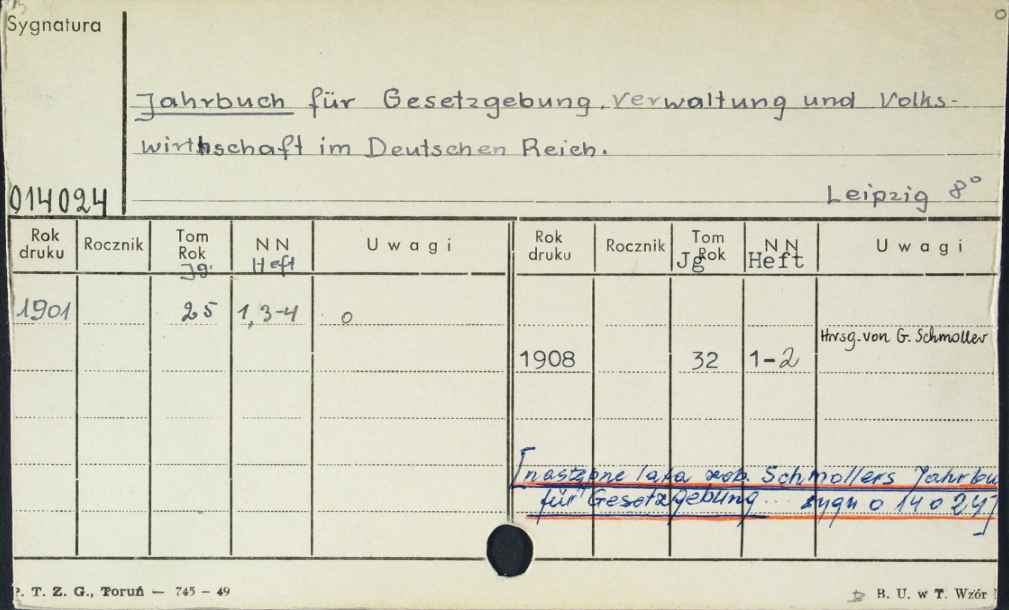 Sygnatura
Jahrbuch für Gesetzgebung, Verwaltung und Volks-
wirthschaft im Deutschen Reich.
014024
Leipzig 8°
Rok druku Rocznik Tom Rok Jg. NN Heft Uwagi Rok druku Rocznik Tom Rok Jg NN Heft Uwagi
1901 25 1, 3-4 o
Hrsg. von G. Schmoller
1908 32 1-2
[następne lata zob. Schmollers Jahrbu
für Gesetzgebung... sygn 014024]
P. T. Z. G., Toruń — 745 — 49
B. U. w T. Wzór